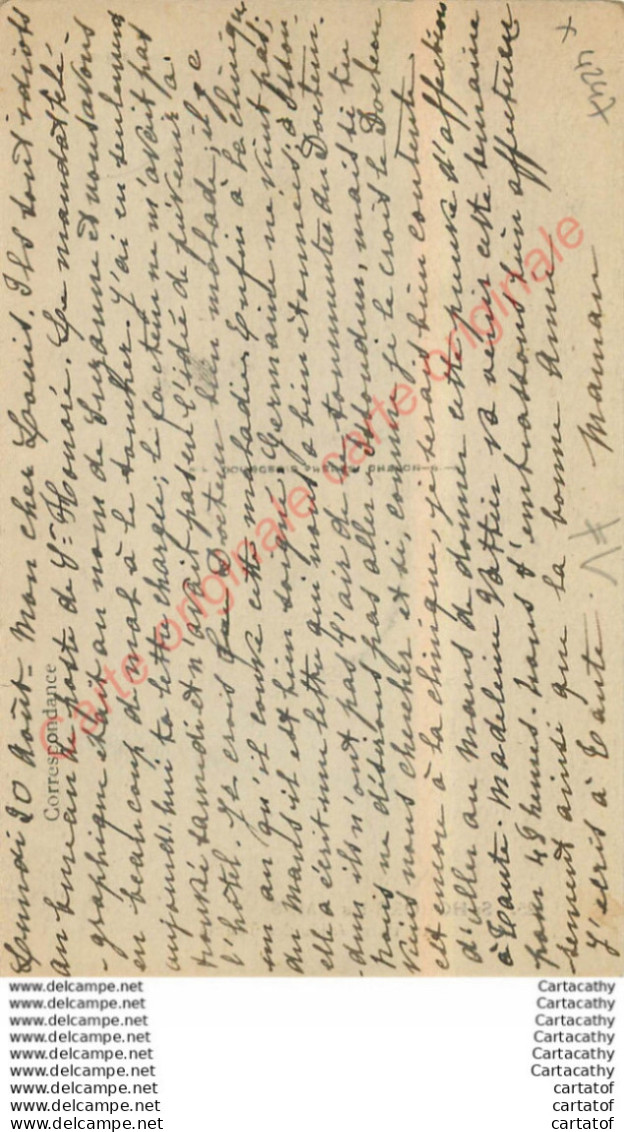 Lundi 20 Août = Mon cher Louis. Ils sont idiots
au bureau de poste de St Honoré. Le mandat télé-
-graphique était au nom de Suzanne et nous avons
eu beaucoup de mal à le toucher. J'ai eu seulement
aujourd'hui ta lettre chargée; le facteur ne m'avait pas
trouvé samedi et n'avait pas eu l'idée de prévenir à
l'hôtel. Je crois que Docteur bien malade; il y a
un an qu'il couve cette maladie. Enfin à la clinique
du Mans il est bien soigné. Germaine ne vient pas,
elle a écrit une lettre qui nous a bien étonnés; à Issou-
-dun ils n'ont pas l'air de se tourmenter du Docteur.
Nous ne désirons pas aller à Issoudun, mais si tu
viens nous chercher et si, comme je le crois le Docteur
est encore à la clinique, je serais bien contente
d'aller au Mans te donner cette preuve d'affection
à Tante. Madeleine va venir cette semaine
pour 48 heures. Nous t'embrassons bien affectueu
sement ainsi que la bonne Amie
J'écris à Tante. Maman
Correspondance
Carte originale carte originale
www.delcampe.net Cartacathy
www.delcampe.net Cartacathy
www.delcampe.net Cartacathy
www.delcampe.net Cartacathy
www.delcampe.net Cartacathy
www.delcampe.net Cartacathy
www.delcampe.net cartatof
www.delcampe.net cartatof
www.delcampe.net cartatof